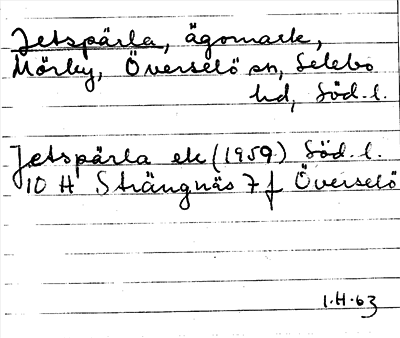 Jetspärla, ägomark,
Mörby, Överselö sn, Selebo
hd, Söd. l.
Jetspärla ek (1959) Söd. l.
10 H Strängnäs 7 f Överselö
1.H.63